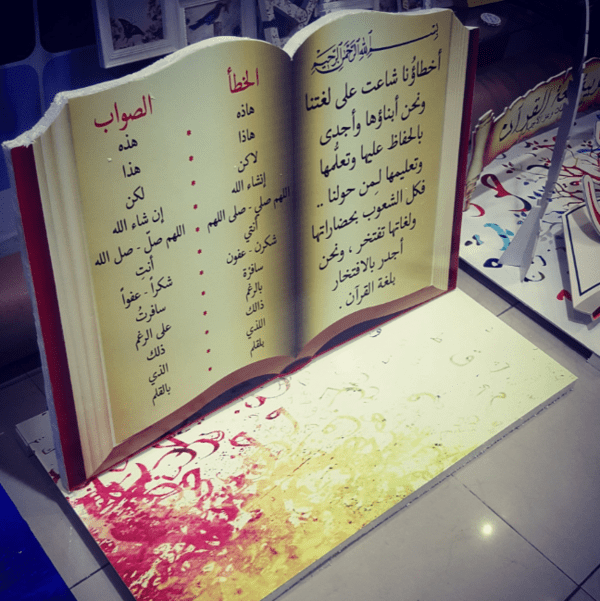 بسم الله الرحمن الرحيم
أخطاؤنا شاعت على لغتنا
ونحن أبناؤها وأجدى
بالحفاظ عليها وتعلُّمها
وتعليمها لـِمن حولنا ..
فكل الشعوب بحضاراتها
ولغاتها تفتخر ، ونحن
أجدر بالافتخار
بلغة القرآن .
الخطأ الصواب
هاذه • هذه
هاذا • هذا
لاكن • لكن
إنشاء الله • إن شاء الله
اللهم صلي - صلى اللهم • اللهم صلّ - صل الله
أنتي • أنتِ
شكرن - عفون • شكراً - عفواً
سافرة • سافرتُ
بالرغم • على الرغم
ذالك • ذلك
اللذي • الذي
بلقلم • بالقلم
لغة القرآن